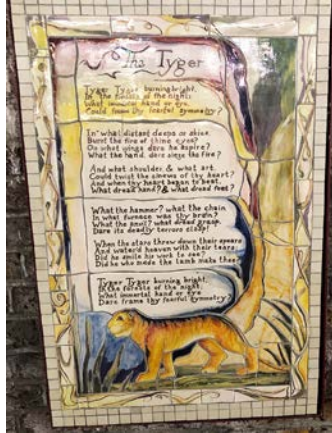 The Tyger
Tyger Tyger burning bright,
In the forests of the night:
What immortal hand or eye,
Could frame thy fearful symmetry?
In what distant deeps or skies.
Burnt the fire of thine eyes?
On what wings dare he aspire?
What the hand, dare sieze the fire?
And what shoulder & what art,
Could twist the sinews of thy heart?
And when thy heart began to beat,
What dread hand? & what dread feet?
What the hammer? what the chain
In what furnace was thy brain?
What the anvil? what dread grasp,
Dare its deadly terrors clasp!
When the stars threw down their spears
And water'd heaven with their tears:
Did he smile his work to see?
Did he who made the lamb make thee?
Tyger Tyger burning bright,
In the forests of the night,
What immortal hand or eye
Dare frame thy fearful symmetry?